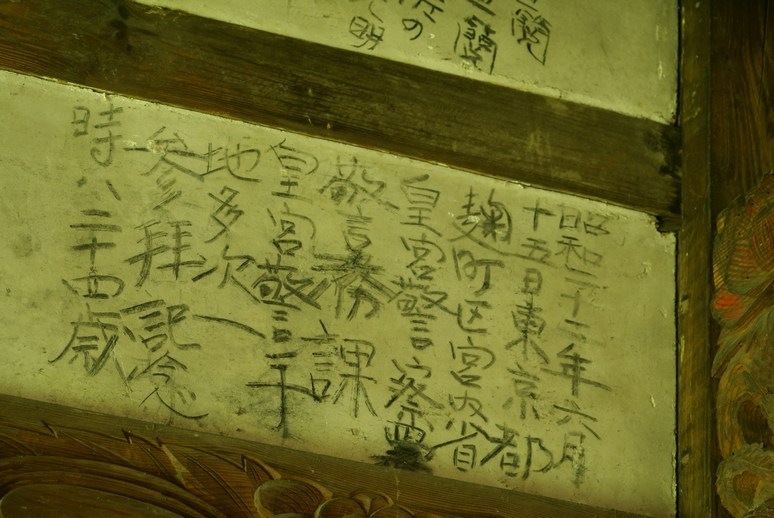 昭和二十二年六月
十五日東京都
麹町区宮内省
皇宮警察署
警務課
皇宮警手
地多次一
参拝記念
時八二十四歳